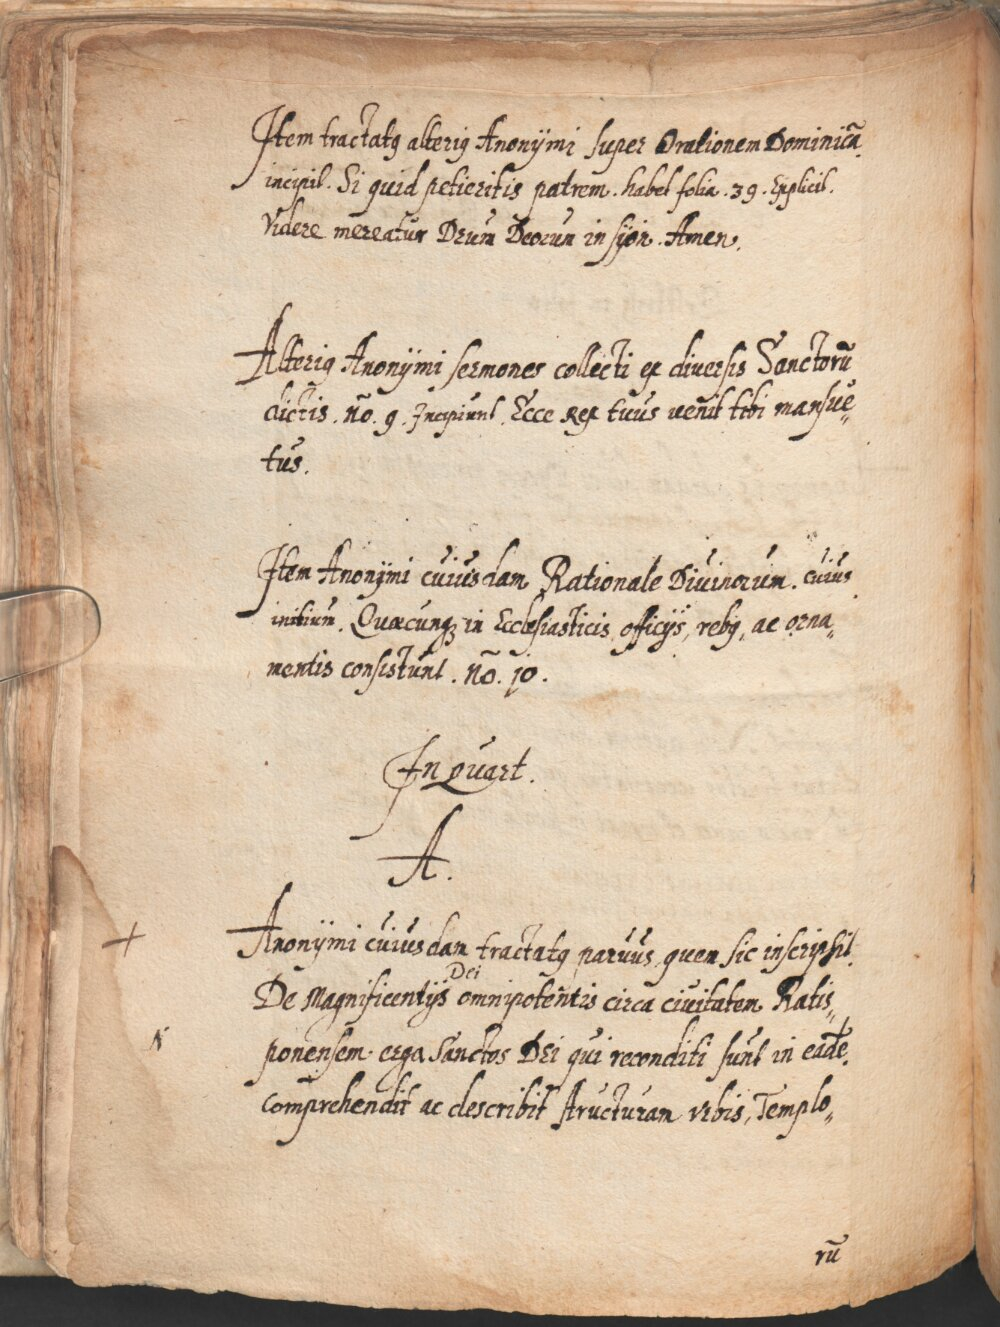 Item tractatꝰ alteriꝰ Anonÿmi super Orationem Dominicā
incipit. Si quid petieritis patrem. habet folia. 39. Explicit.
Videre mereatur Deum Deorum in sÿon. Amen.
Alteriꝰ Anonÿmi sermones collecti ex diversis Sanctorū
dictis. ño. 9. Incipiunt. Ecce Rex tuus venit tibi mansue„
tus.
Item Anonÿmi cuiusdam Rationale Divinorum. cuius
initium. Quæcunqꝫ in Ecclesiasticis officÿs, rebꝰ, ac orna„
mentis consistunt. ño. 10.
In quart.
A.
+
Anonÿmi cuiusdam tractatꝰ parvus, quem sic inscripsit
Dei
De Magnificentÿs omnipotentis circa civitatem Ratis„
ponensem erga Sanctos Dei qui reconditi sunt in eadē +
comprehendit ac describit structuram urbis, Templo„
rū